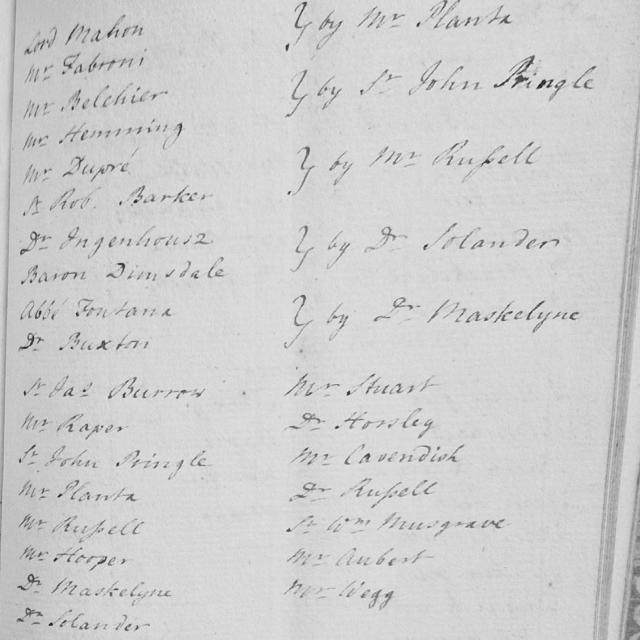 Lord Mahon
Mr Fabroni
} by Mr Planta
Mr Belchier
Mr Hemming
} by Sr John Pringle
Mr Dupré
Sr Rob. Barker
} by Mr Rufsell
Dr Ingenhousz
Baron Dimsdale
} by Dr Solander
Abbé Fontana
Dr Buxton
} by Dr Maskelyne
Sr Jas Burrow Mr Stuart
Mr Raper Dr Horsley
Sr John Pringle Mr Cavendish
Mr Planta Dr Rufsell
Mr Rufsell Sr Wm Musgrave
Mr Hooper Mr Aubert
Dr Maskelyne Mr Wegg
Dr Solander